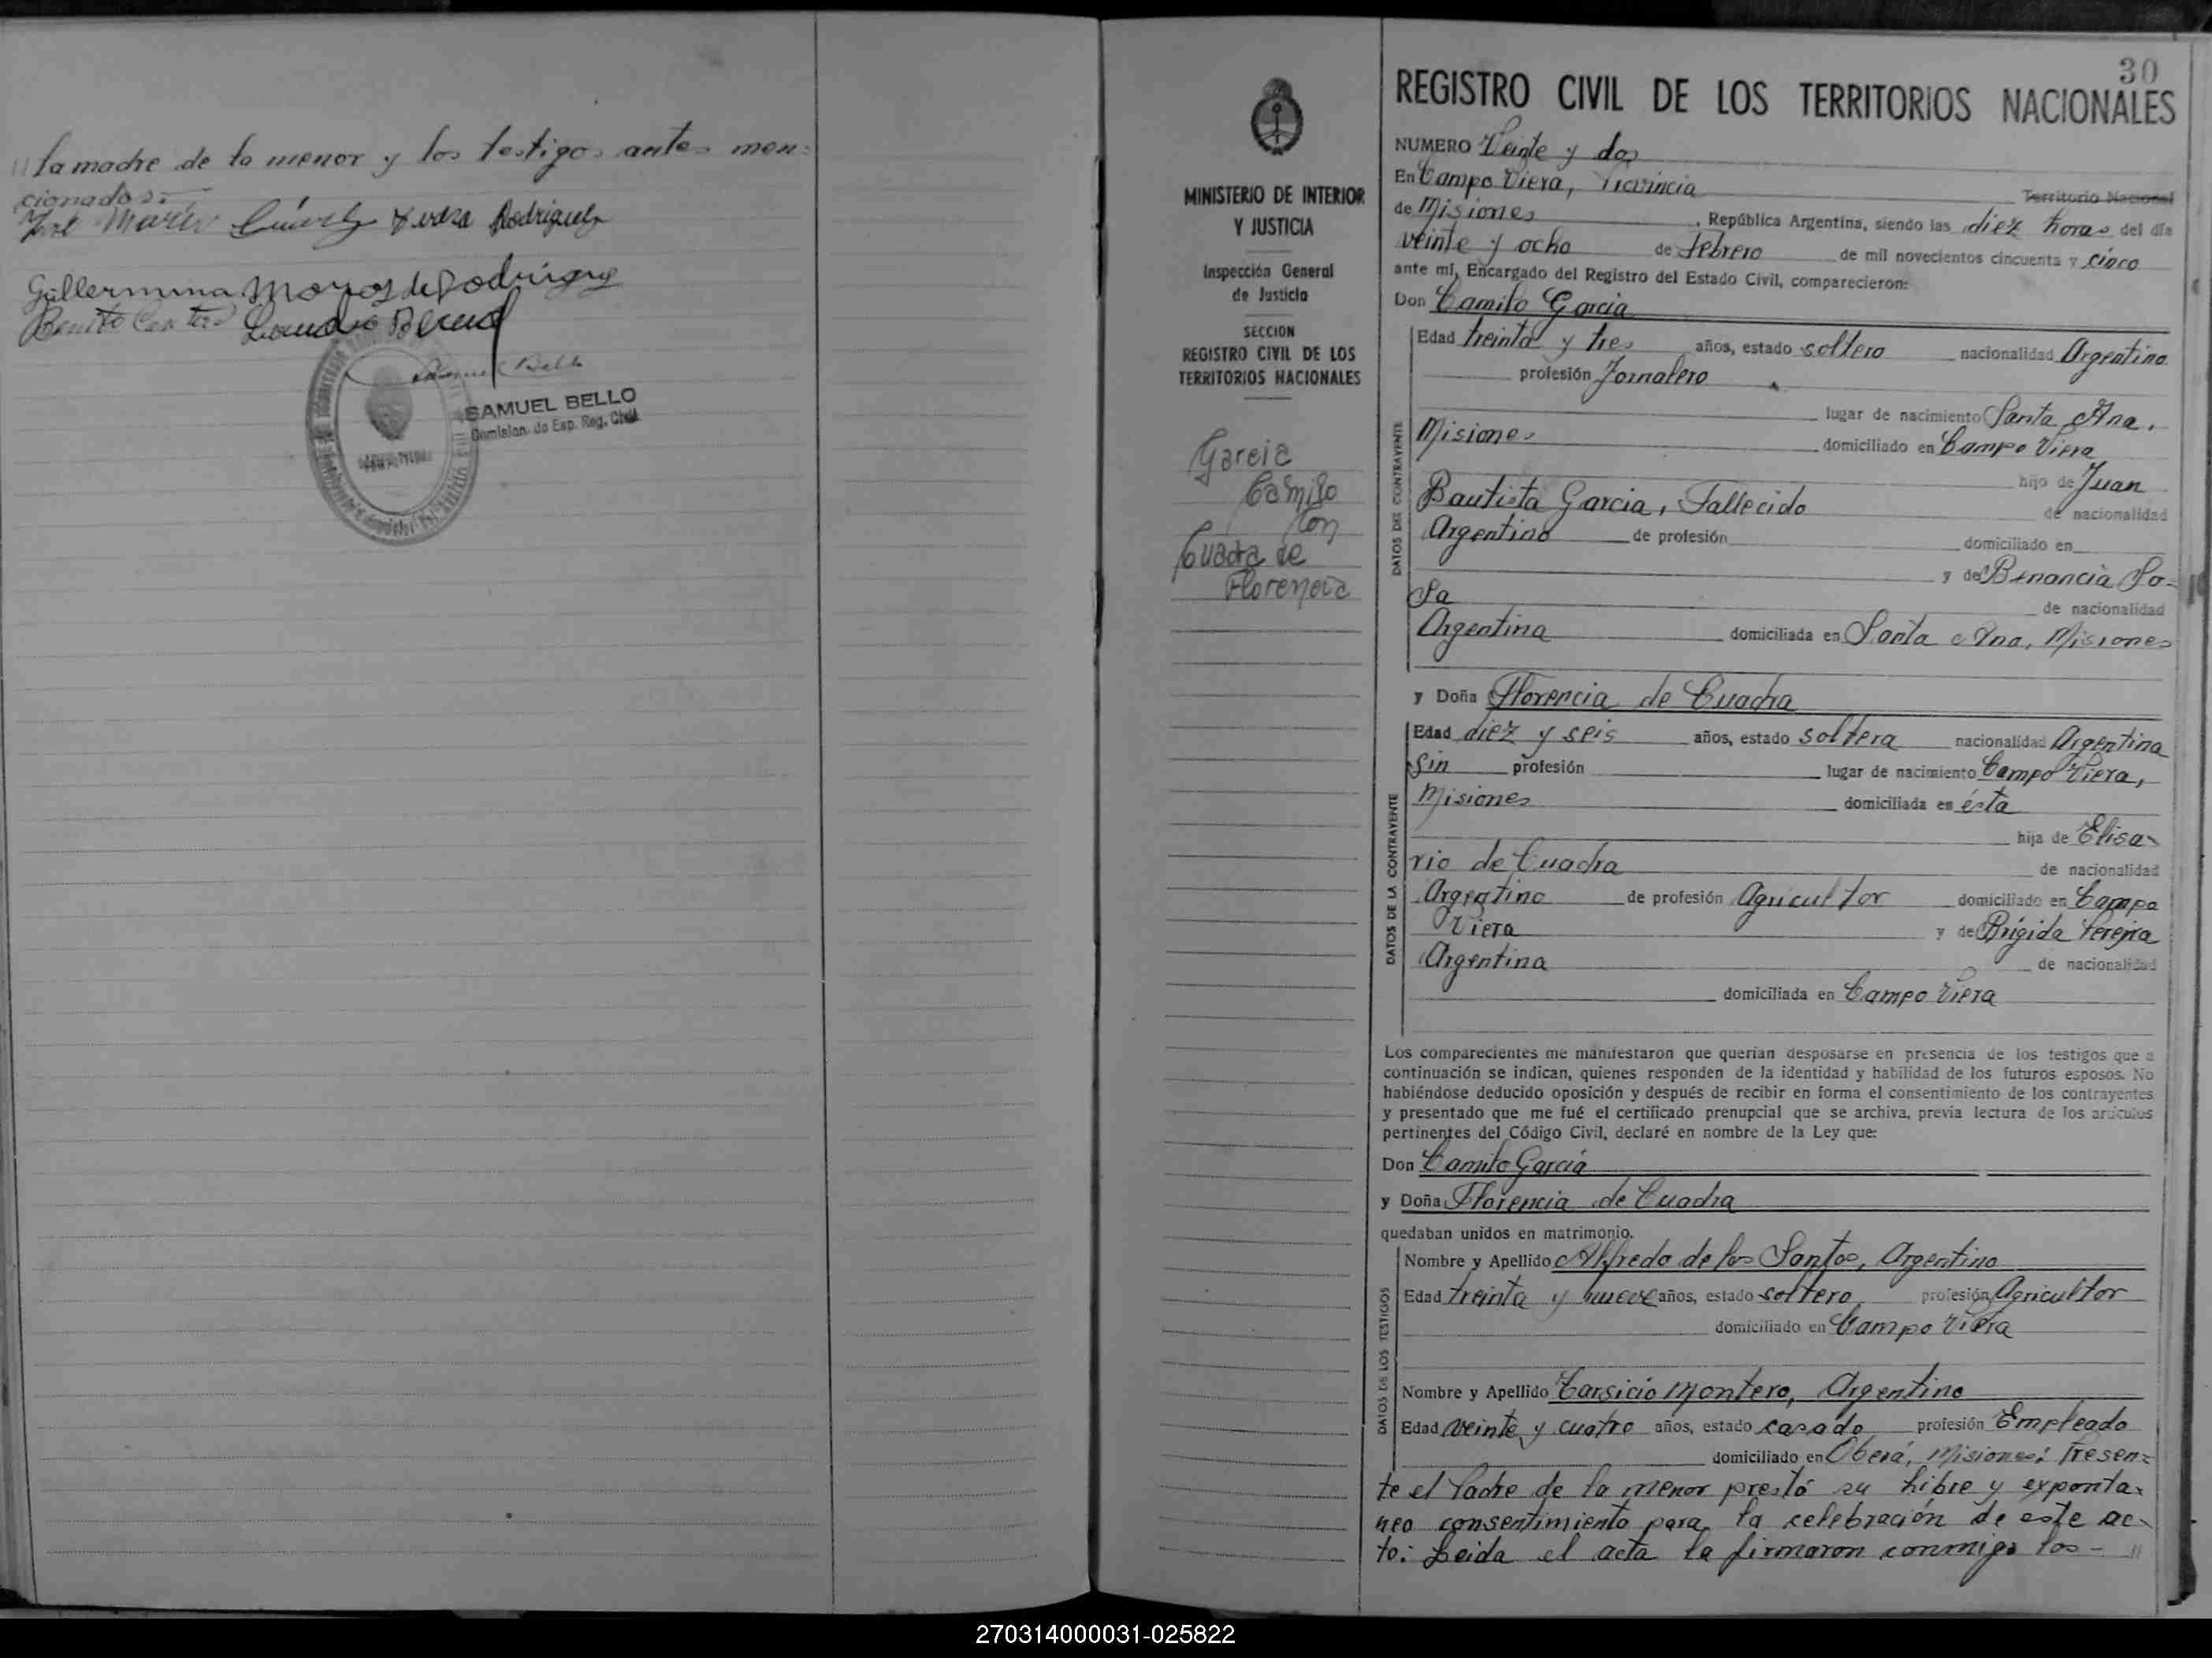 // la madre de la menor y los testigos antes men=
cionados:-
José
Rodriguez
Guillermina de Rodriguez
Benito
SAMUEL BELLO
Comision. de Esp. Reg. Civil
30
REGISTRO CIVIL DE LOS TERRITORIOS NACIONALES
MINISTERIO DE INTERIOR
Y JUSTICIA
Inspección General
de Justicia
SECCION
REGISTRO CIVIL DE LOS
TERRITORIOS NACIONALES
Garcia
Camilo
Con
Cuadra de
Florencia
NUMERO Veinte y dos
En Campo Viera, Provincia Territorio Nacional
de Misiones, República Argentina, siendo las diez horas del día
veinte y ocho de febrero de mil novecientos cincuenta y cinco
ante mí, Encargado del Registro del Estado Civil, comparecieron:
Don Camilo Garcia
DATOS DEL CONTRAYENTE
Edad treinta y tres años, estado soltero nacionalidad Argentino
profesión Jornalero
lugar de nacimiento Santa Ana,
Misiones domiciliado en Campo Viera
hijo de Juan
Bautista Garcia, Fallecido de nacionalidad
Argentino de profesión domiciliado en
y de Benancia So-
sa de nacionalidad
Argentina domiciliada en Santa Ana, Misiones
y Doña Florencia de Cuadra
DATOS DE LA CONTRAYENTE
Edad diez y seis años, estado soltera nacionalidad Argentina
Sin profesión lugar de nacimiento Campo Viera,
Misiones domiciliada en ésta
hija de Elisa-
rio de Cuadra de nacionalidad
Argentino de profesión Agricultor domiciliado en Campo
Viera y de Brígida Pereira
Argentina de nacionalidad
domiciliada en Campo Viera
Los comparecientes me manifestaron que querían desposarse en presencia de los testigos que a
continuación se indican, quienes responden de la identidad y habilidad de los futuros esposos. No
habiéndose deducido oposición y después de recibir en forma el consentimiento de los contrayentes
y presentado que me fué el certificado prenupcial que se archiva, previa lectura de los artículos
pertinentes del Código Civil, declaré en nombre de la Ley que:
Don Camilo Garcia
y Doña Florencia de Cuadra
quedaban unidos en matrimonio.
DATOS DE LOS TESTIGOS
Nombre y Apellido Alfredo de los Santos, Argentino
Edad treinta y nueve años, estado soltero profesión Agricultor
domiciliado en Campo Viera
Nombre y Apellido Tarsicio Montero, Argentino
Edad veinte y cuatro años, estado casado profesión Empleado
domiciliado en Oberá, Misiones: Presen=
te el Padre de la menor prestó su libre y exponta-
neo consentimiento para la celebración de este ac-
to: Leida el acta la firmaron conmigo los - //
270314000031-025822